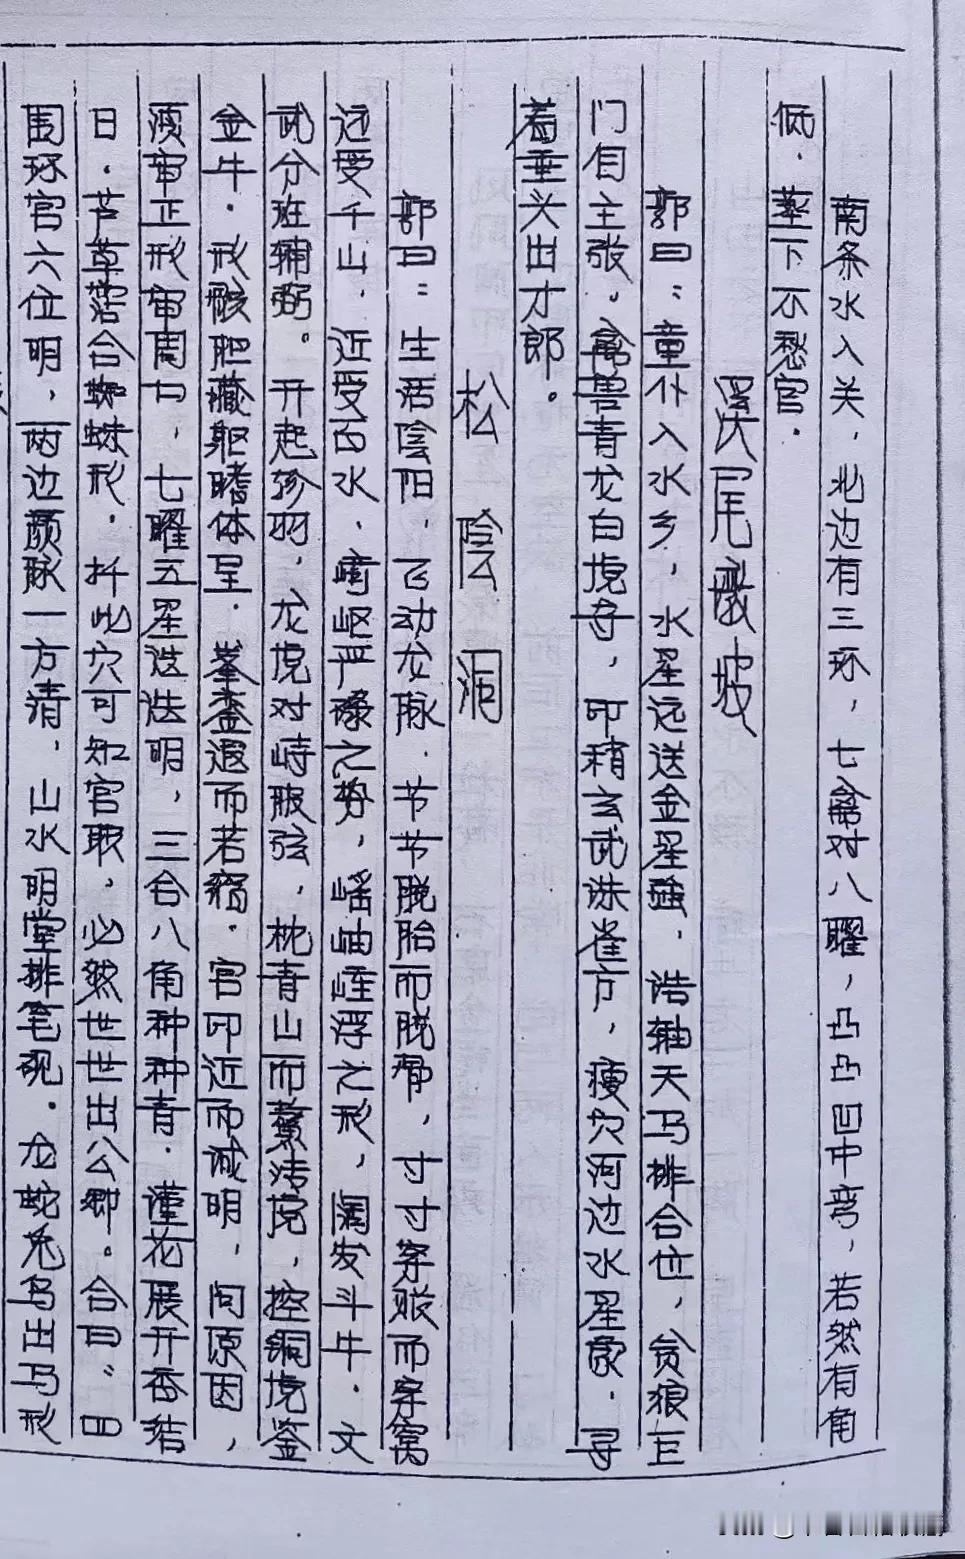 南条水入关，北边有三环，七禽对八曜，凸凸凹中弯，若然有角
低．塟下不愁官．
溪尾 坡
郭曰：童仆入水乡，水星远送金星强，浩轴天马排合位，贪狼巨
门自主张。禽兽青龙白虎寺，印稍玄武洙雀方，瘦穴河边水星象．寻
着垂头出才郎．
松 陰 洞
郭曰：生活陰阳，飞动龙脉．节节脱胎而脱 ，寸寸 而
远受千山．近受百水．崎岖严 之势，峿岫 浮之形，阔发斗牛．文
武分班辅弼。开起 羽，龙虎对峙服弦，枕青山而 虎，控铜境鉴
金牛．形骸胆藏躯 体呈．峯峦遐而若 ．官印近而诚明，问原因，
须审正形审周勻，七曜五星迭迭明，三合八角种种青．蓮花展开吞结
日．芦草落合蜘蛛形．扦此穴可知官职，必然世世出公卿。合曰：四
围环宫六位明，两边颜脉一方清，山水明堂排笔砚．龙蛇兔乌出马形